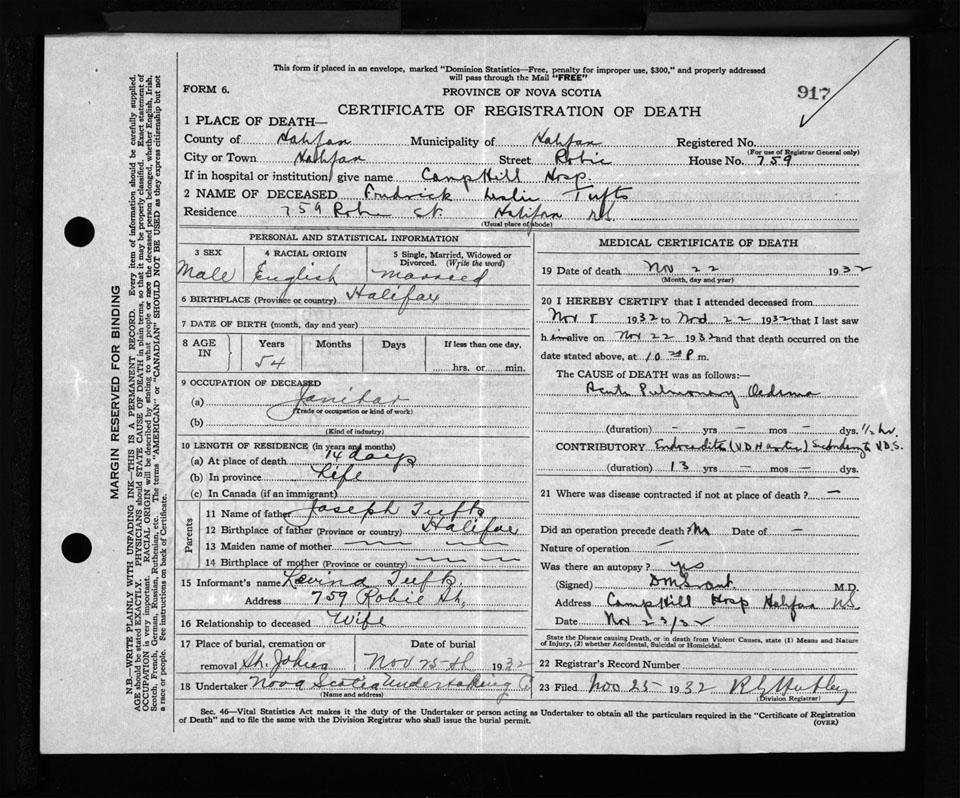 This form if placed in an envelope, marked "Dominion Statistics—Free, penalty for improper use, $300," and properly addressed
will pass through the Mail "FREE"
FORM 6.
PROVINCE OF NOVA SCOTIA
917
CERTIFICATE OF REGISTRATION OF DEATH
1 PLACE OF DEATH—
County of Halifax Municipality of Halifax Registered No.
(For use of Registrar General only)
City or Town Halifax Street Robie House No. 759
If in hospital or institution give name Camp Hill Hosp.
2 NAME OF DECEASED Fredrick Leslie Tufts
Residence 759 Robie St. Halifax N.S.
(Usual place of abode)
PERSONAL AND STATISTICAL INFORMATION
3 SEX 4 RACIAL ORIGIN 5 Single, Married, Widowed or Divorced. (Write the word)
Male English Married
6 BIRTHPLACE (Province or country) Halifax
7 DATE OF BIRTH (month, day and year)
8 AGE IN Years Months Days If less than one day,
54 hrs. or min.
9 OCCUPATION OF DECEASED
(a) Janitor
(Trade or occupation or kind of work)
(b)
(Kind of industry)
10 LENGTH OF RESIDENCE (in years and months)
(a) At place of death 14 days
(b) In province Life
(c) In Canada (if an immigrant)
Parents
11 Name of father Joseph Tufts
12 Birthplace of father (Province or country) Halifax
13 Maiden name of mother —
14 Birthplace of mother (Province or country) —
15 Informant's name Levina Tufts
Address 759 Robie St.
16 Relationship to deceased Wife
17 Place of burial, cremation or removal St. Johns Date of burial Nov 25th 1932
18 Undertaker Nova Scotia Undertaking Co
(Name and address)
MEDICAL CERTIFICATE OF DEATH
19 Date of death Nov 22 1932
(Month, day and year)
20 I HEREBY CERTIFY that I attended deceased from
Nov 8 1932 to Nov 22 1932 that I last saw
him alive on Nov 22 1932 and that death occurred on the
date stated above, at 10 P m.
The CAUSE OF DEATH was as follows:—
Acute Pulmonary Oedema
(duration) – yrs – mos – dys. ½ hr.
CONTRIBUTORY Endocarditis (V.D.H. Aortic) Secondary to V.D.S.
(duration) 13 yrs – mos – dys.
21 Where was disease contracted if not at place of death? –
Did an operation precede death? No Date of –
Nature of operation –
Was there an autopsy?
(Signed) M.D.
Address Camp Hill Hosp Halifax N.S.
Date Nov 23/32
State the Disease causing Death, or in death from Violent Causes, state (1) Means and Nature
of Injury, (2) whether Accidental, Suicidal or Homicidal.
22 Registrar's Record Number
23 Filed Nov 25 1932
(Division Registrar)
Sec. 46—Vital Statistics Act makes it the duty of the Undertaker or person acting as Undertaker to obtain all the particulars required in the "Certificate of Registration
of Death" and to file the same with the Division Registrar who shall issue the burial permit.
(OVER)
MARGIN RESERVED FOR BINDING
N.B.—WRITE PLAINLY WITH UNFADING INK—THIS IS A PERMANENT RECORD. Every item of information should be carefully supplied.
AGE should be stated EXACTLY. PHYSICIANS should STATE CAUSE OF DEATH in plain terms, so that it may be properly classified. Exact statement of
OCCUPATION is very important. RACIAL ORIGIN will be described by stating to what people or race the deceased person belonged, whether English, Irish,
Scotch, French, German, Russian, Ruthenian, etc. The terms "AMERICAN" or "CANADIAN" SHOULD NOT BE USED as they express citizenship but not
a race or people. See instructions on back of Certificate.